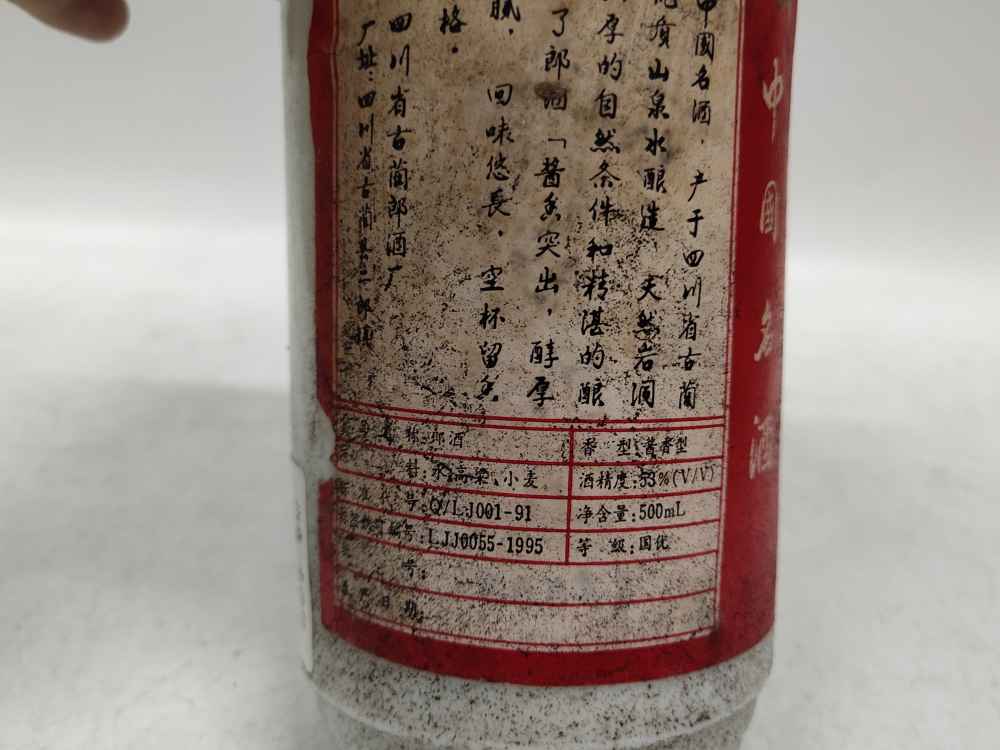 中國名酒，产于四川省古蔺
山泉水酿造　天然岩洞
厚的自然条件和精湛的酿
了郎酒「醬香突出，醇厚
腻，回味悠長，空杯留香
格。
四川省古蔺郎酒厂
厂址：四川省古蔺县二郎镇
称：郎酒
香 型：酱香型
料：水、高粱、小麦
酒精度：53%(V/V)
号：Q/LJ001-91
净含量：500mL
编号：LJJ0055-1995
等 级：国优
号：
产日期：
中國名酒